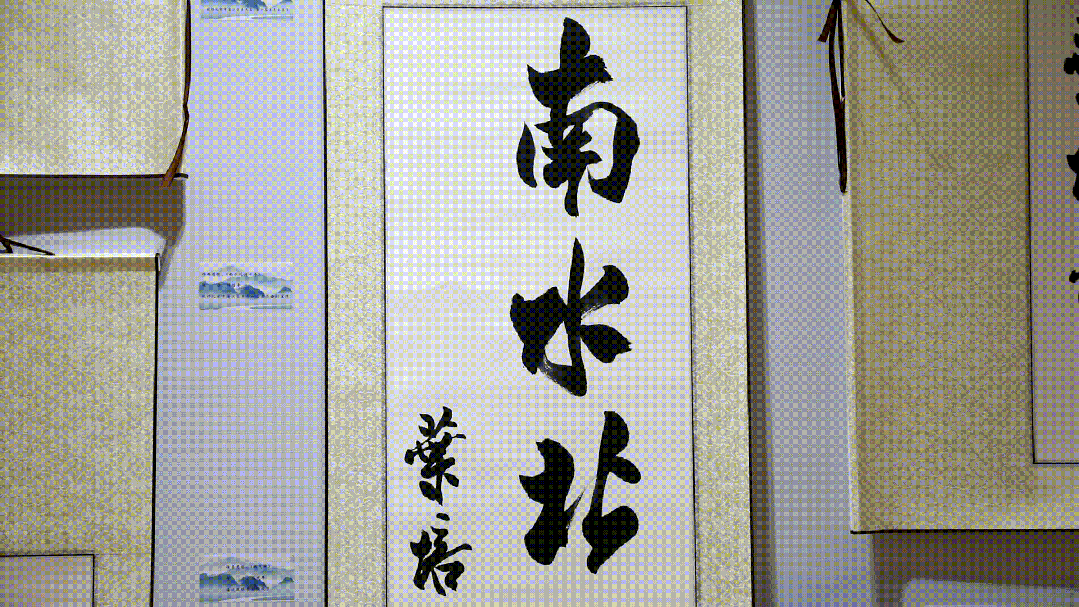 南水北
葉培